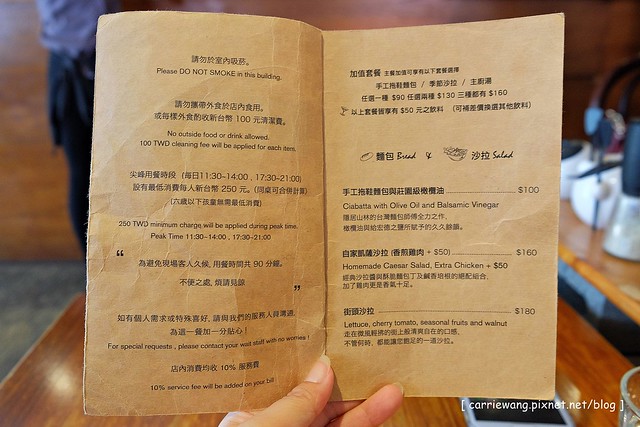 請勿於室內吸菸。
Please DO NOT SMOKE in this building.
請勿攜帶外食於店內食用。
或每樣外食酌收新台幣 100 元清潔費。
No outside food or drink allowed.
100 TWD cleaning fee will be applied for each item.
尖峰用餐時段 (每日11:30~14:00 , 17:30~21:00)
設有最低消費每人新台幣 250 元。(同桌可合併計算)
(六歲以下孩童無需最低消費)
250 TWD minimum charge will be applied during peak time.
Peak Time 11:30~14:00 , 17:30~21:00
“
為避免現場客人久候, 用餐時間共 90 分鐘。
不便之處, 煩請見諒
”
如有個人需求或特殊喜好, 請與我們的服務人員溝通,
為這一餐加一分貼心!
For special requests , please contact your wait staff with no worries !
店內消費均收 10% 服務費
10% service fee will be added on your bill
加值套餐 主餐加值可享有以下套餐選擇
手工拖鞋麵包 / 季節沙拉 / 主廚湯
任選一種 $90 任選兩種 $130 三種都有 $160
以上套餐皆享有 $50 元之飲料 (可補差價換選其他飲料)
麵包 Bread & 沙拉 Salad
手工拖鞋麵包與莊園級橄欖油 $100
Ciabatta with Olive Oil and Balsamic Vinegar
隱居山林的台灣麵包師傅全力之作,
橄欖油與給宏德之鹽所賦予的久久餘韻。
自家凱薩沙拉 (香煎雞肉 + $50) $160
Homemade Caesar Salad, Extra Chicken + $50
經典沙拉醬與酥脆麵包丁及鹹香培根的絕配組合,
加了雞肉更是香氣十足。
街頭沙拉 $180
Lettuce, cherry tomato, seasonal fruits and walnut
走在微風輕拂的街上般清爽自在的口感,
不管何時, 都能讓您飽足的一道沙拉。
[ carriewang.pixnet.net/blog ]